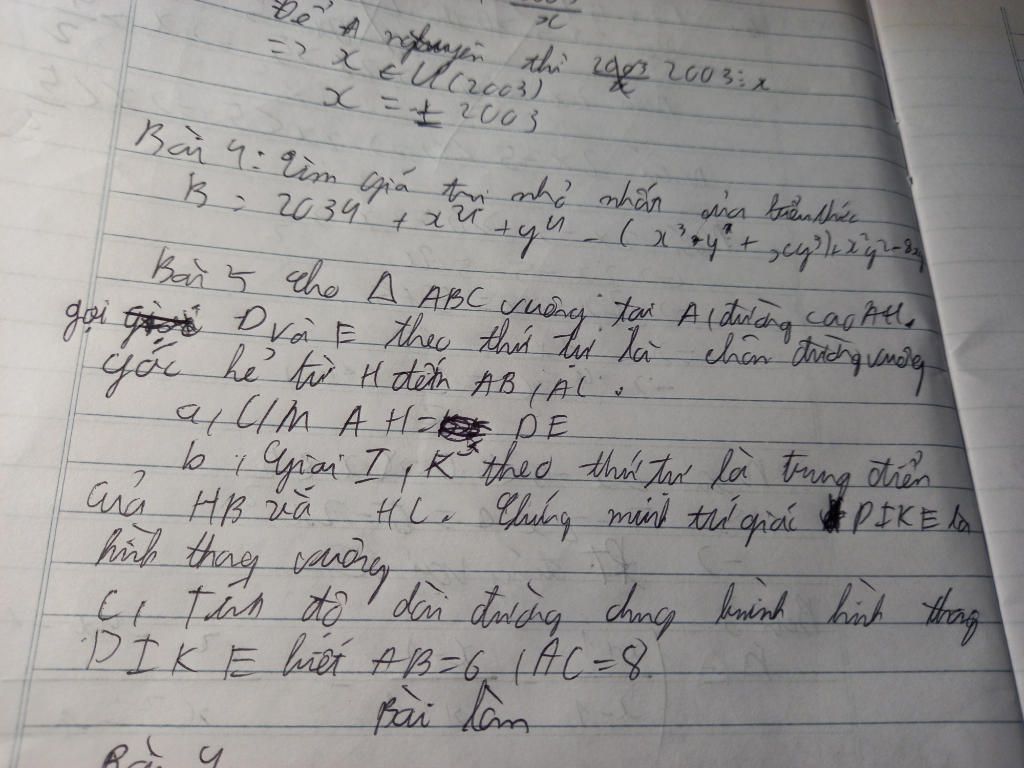 x
Để A nguyên thì 2003 ⋮ x
=> x ∈ Ư(2003)
x = ± 2003
Bài 4: Tìm giá trị nhỏ nhất của biểu thức
B = 2034 + x⁴ + y⁴ - (x³ y + xy³) + x²y² - 8xy
Bài 5 Cho Δ ABC vuông tại A, đường cao AH.
gọi D và E theo thứ tự là chân đường vuông
góc kẻ từ H đến AB, AC.
a, C/M AH = DE
b, Gọi I, K theo thứ tự là trung điển
của HB và HC. Chứng minh tứ giác DIKE là
hình thang vuông
c, Tính độ dài đường trung bình hình thang
DIKE biết AB=6, AC=8
Bài làm
Bài 4